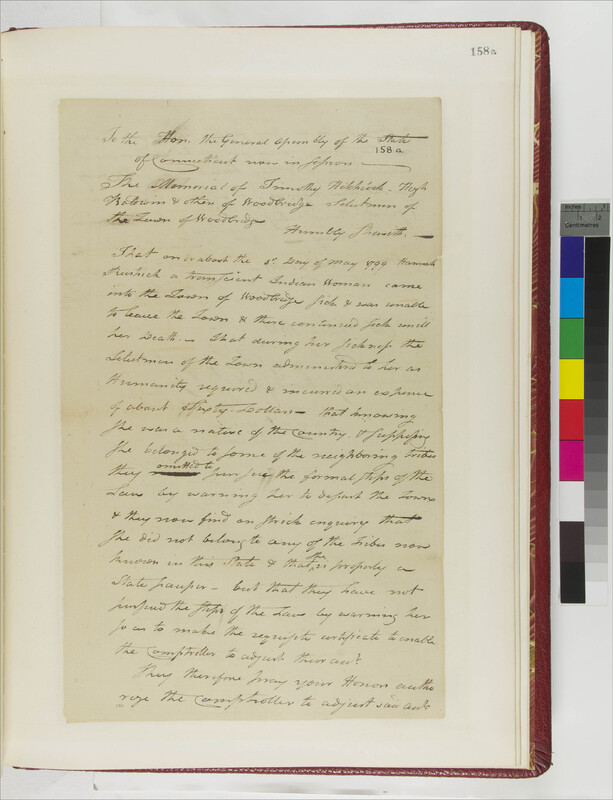 158a
To the Hon. the General Assembly of the State
158a
of Connecticut now in Session
The Memorial of Timothy Hitchcock. Hugh
Baldwin & other of Woodbridge Selectmen of
the Town of Woodbridge
Humbly Sheweth. —
That on or about the Day of May 1799 Hannah
a transient Indian Woman came
into the Town of Woodbridge sick & was unable
to leave the Town & there continued sick untill
her Death. — that during her sickness the
Selectmen of the Town administered to her as
Humanity required & incurred an expence
of about Sixty Dollars — that knowing
she was a native of the Country & supposing
she belonged to some of the neighboring tribes
they omitted to pursue the formal steps of the
Law by warning her to depart the Town
& they now find on strick enquiry that
she did not belong to any of the tribes now
known in this State & that she is properly a
State pauper — but that they have not
pursued the steps of the Law by warning her
so as to make the requisite certificate to enable
the Comptroller to adjust their acct
They therefore pray your Honors autho
rize the Comptroller to adjust said acct